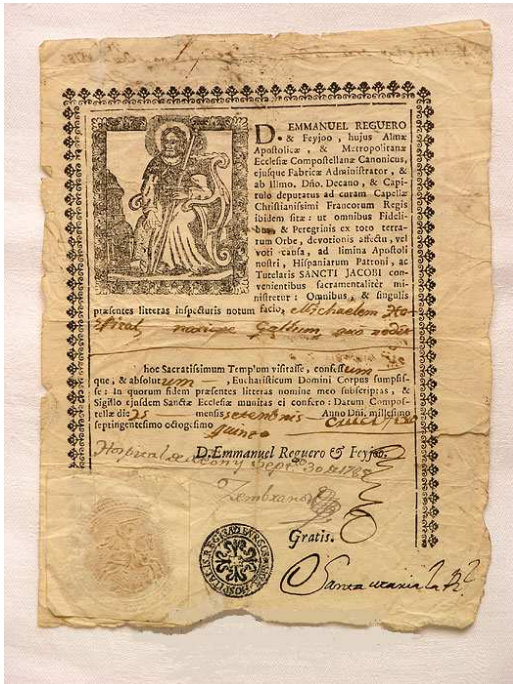 D. EMMANUEL REGUERO
& Feyjoo, hujus Almæ
Apostolicæ, & Metropolitanæ
Ecclesiæ Compostellanæ Canonicus,
ejusque Fabricæ Administrator, &
ab Illmo. Dño. Decano, & Capi-
tulo deputatus ad curam Capellæ
Christianissimi Francorum Regis
ibidem sitæ: ut omnibus Fideli-
bus, & Peregrinis ex toto terra-
rum Orbe, devotionis affectu, vel
voti causa, ad limina Apostoli
nostri, Hispaniarum Patroni, ac
Tutelaris SANCTI JACOBI con-
venientibus sacramentaliter mi-
nistretur: Omnibus, & singulis
præsentes litteras inspecturis notum facio, Michaelem
Gallum
hoc Sacratissimum Templom visitasse, confessum
que, & absolutum, Eucharisticum Domini Corpus sumpsis-
se: In quorum fidem præsentes literas nomine meo subscriptas, &
Sigillo ejusdem Sanctæ Ecclesiæ munitas ei confero: Datum Compos-
tellæ die 25 mensis setembris Anno Dñi. millesimo
septingentesimo octogesimo
quinto
D. Emmanuel Reguero & Feyjoo.
Hospital
Zambrano
Gratis.
Santa maria